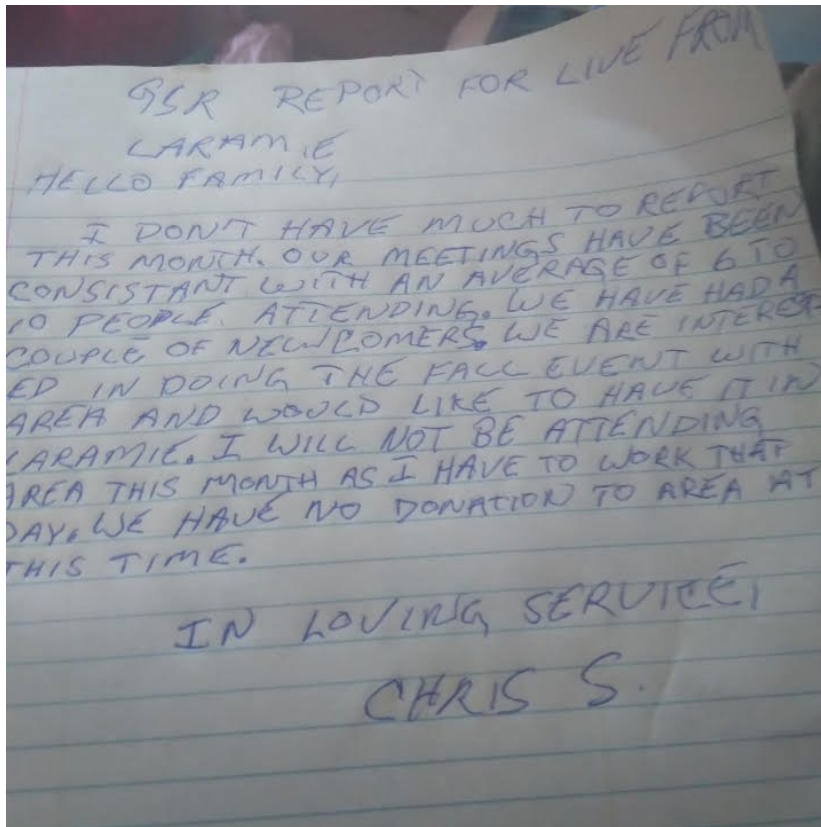 GSR REPORT FOR LIVE FROM
LARAMIE
HELLO FAMILY,
I DON'T HAVE MUCH TO REPORT
THIS MONTH. OUR MEETINGS HAVE BEEN
CONSISTANT WITH AN AVERAGE OF 6 TO
10 PEOPLE ATTENDING. WE HAVE HAD A
COUPLE OF NEWCOMERS. WE ARE INTEREST-
ED IN DOING THE FALL EVENT WITH
AREA AND WOULD LIKE TO HAVE IT IN
LARAMIE. I WILL NOT BE ATTENDING
AREA THIS MONTH AS I HAVE TO WORK THAT
DAY. WE HAVE NO DONATION TO AREA AT
THIS TIME.
IN LOVING SERVICE,
CHRIS S.